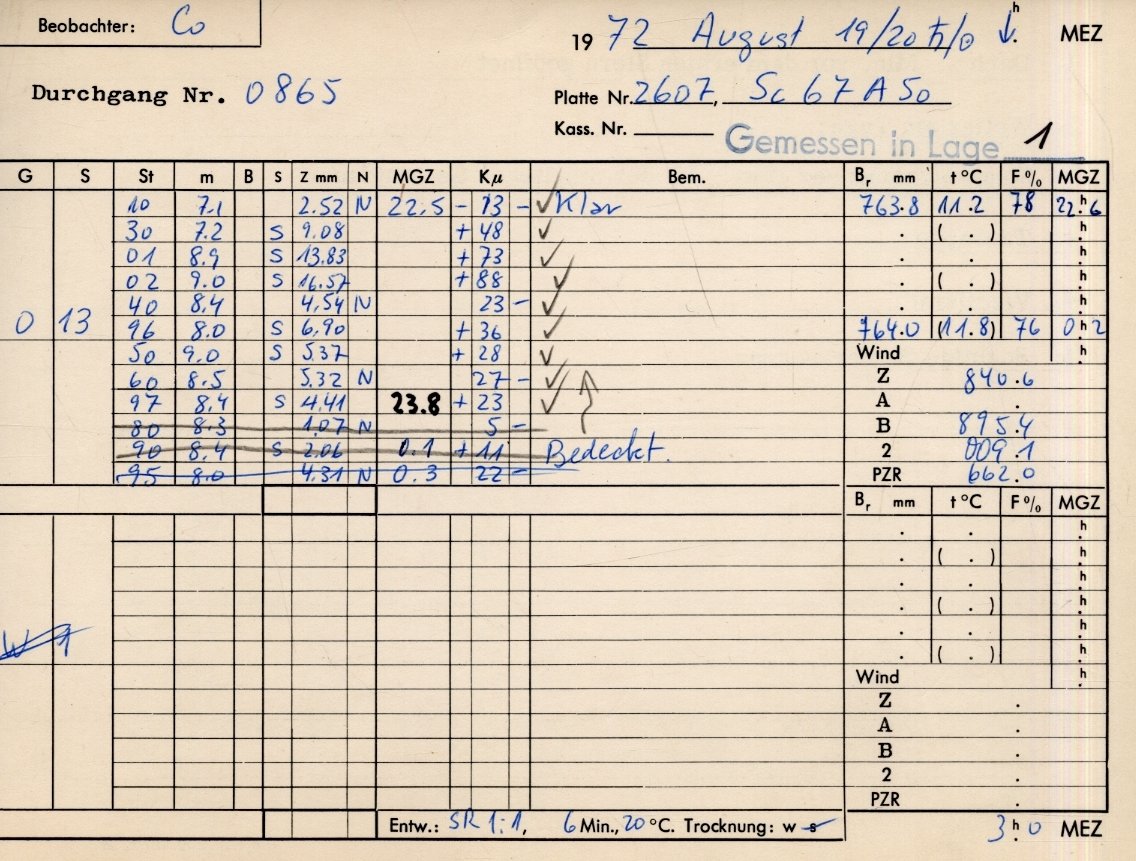 Beobachter: Co
19 72 August 19/20 ♄/☉ h MEZ
Durchgang Nr. 0865
Platte Nr. 2607, Sc 67 A 50
Kass. Nr.
Gemessen in Lage 1
G S St m B S Z mm N MGZ Kμ Bem. Br mm t °C F % MGZ
10 7.1 2.52 N 22.5 - 13 - ✓ Klar 763.8 11.2 78 22.h6
30 7.2 S 9.08 + 48 ✓ . ( . ) h
01 8.9 S 13.83 + 73 ✓ . . h
02 9.0 S 16.57 + 88 ✓ . ( . ) h
40 8.4 4.54 N 23 - ✓ . . h
0 13 96 8.0 S 6.90 + 36 ✓ 764.0 (11.8) 76 0h2
50 9.0 S 5.37 + 28 ✓ Wind h
60 8.5 5.32 N 27 - ✓ Z 840.6
97 8.4 S 4.41 23.8 + 23 ✓ A .
80 8.3 1.07 N 5 - B 895.4
90 8.4 S 2.06 0.1 + 11 Bedeckt. 2 009.1
95 8.0 4.31 N 0.3 22 - PZR 662.0
Br mm t °C F % MGZ
. . h
. ( . ) h
. . h
. ( . ) h
W 1 . . h
. ( . ) h
Wind h
Z .
A .
B .
2 .
PZR .
Entw.: SR 1:1, 6 Min., 20 °C. Trocknung: w s 3h.0 MEZ